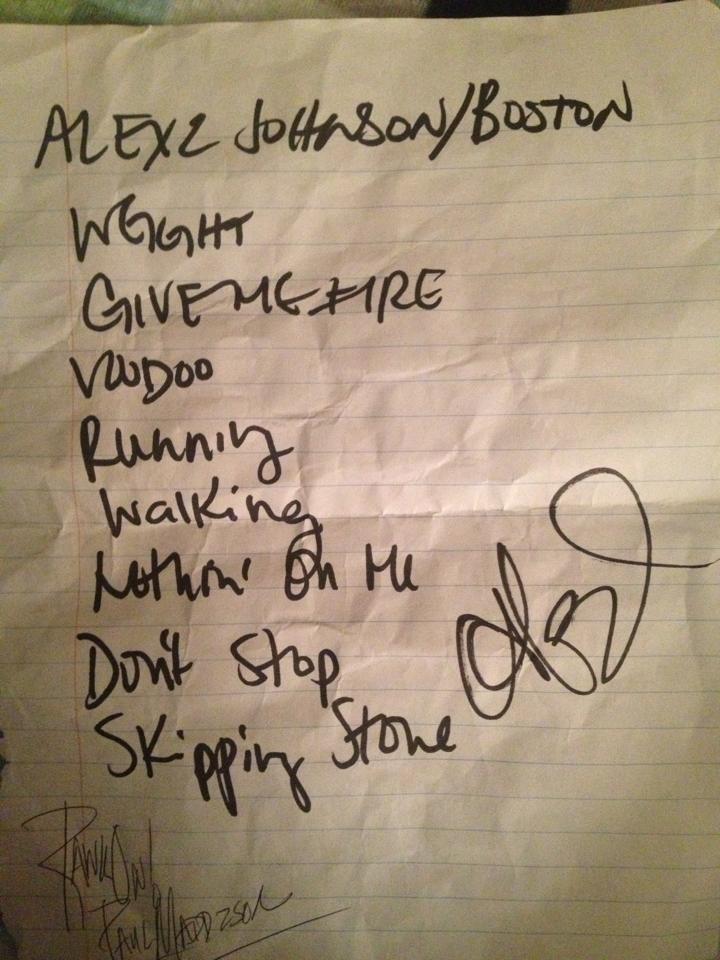 ALEXZ JOHNSON/BOSTON
WEIGHT
GIVE ME FIRE
VOODOO
Running
Walking
Nothin' On Me
Don't Stop
Skipping Stone
Alexz
RAWK ON!
PAUL MADDISON